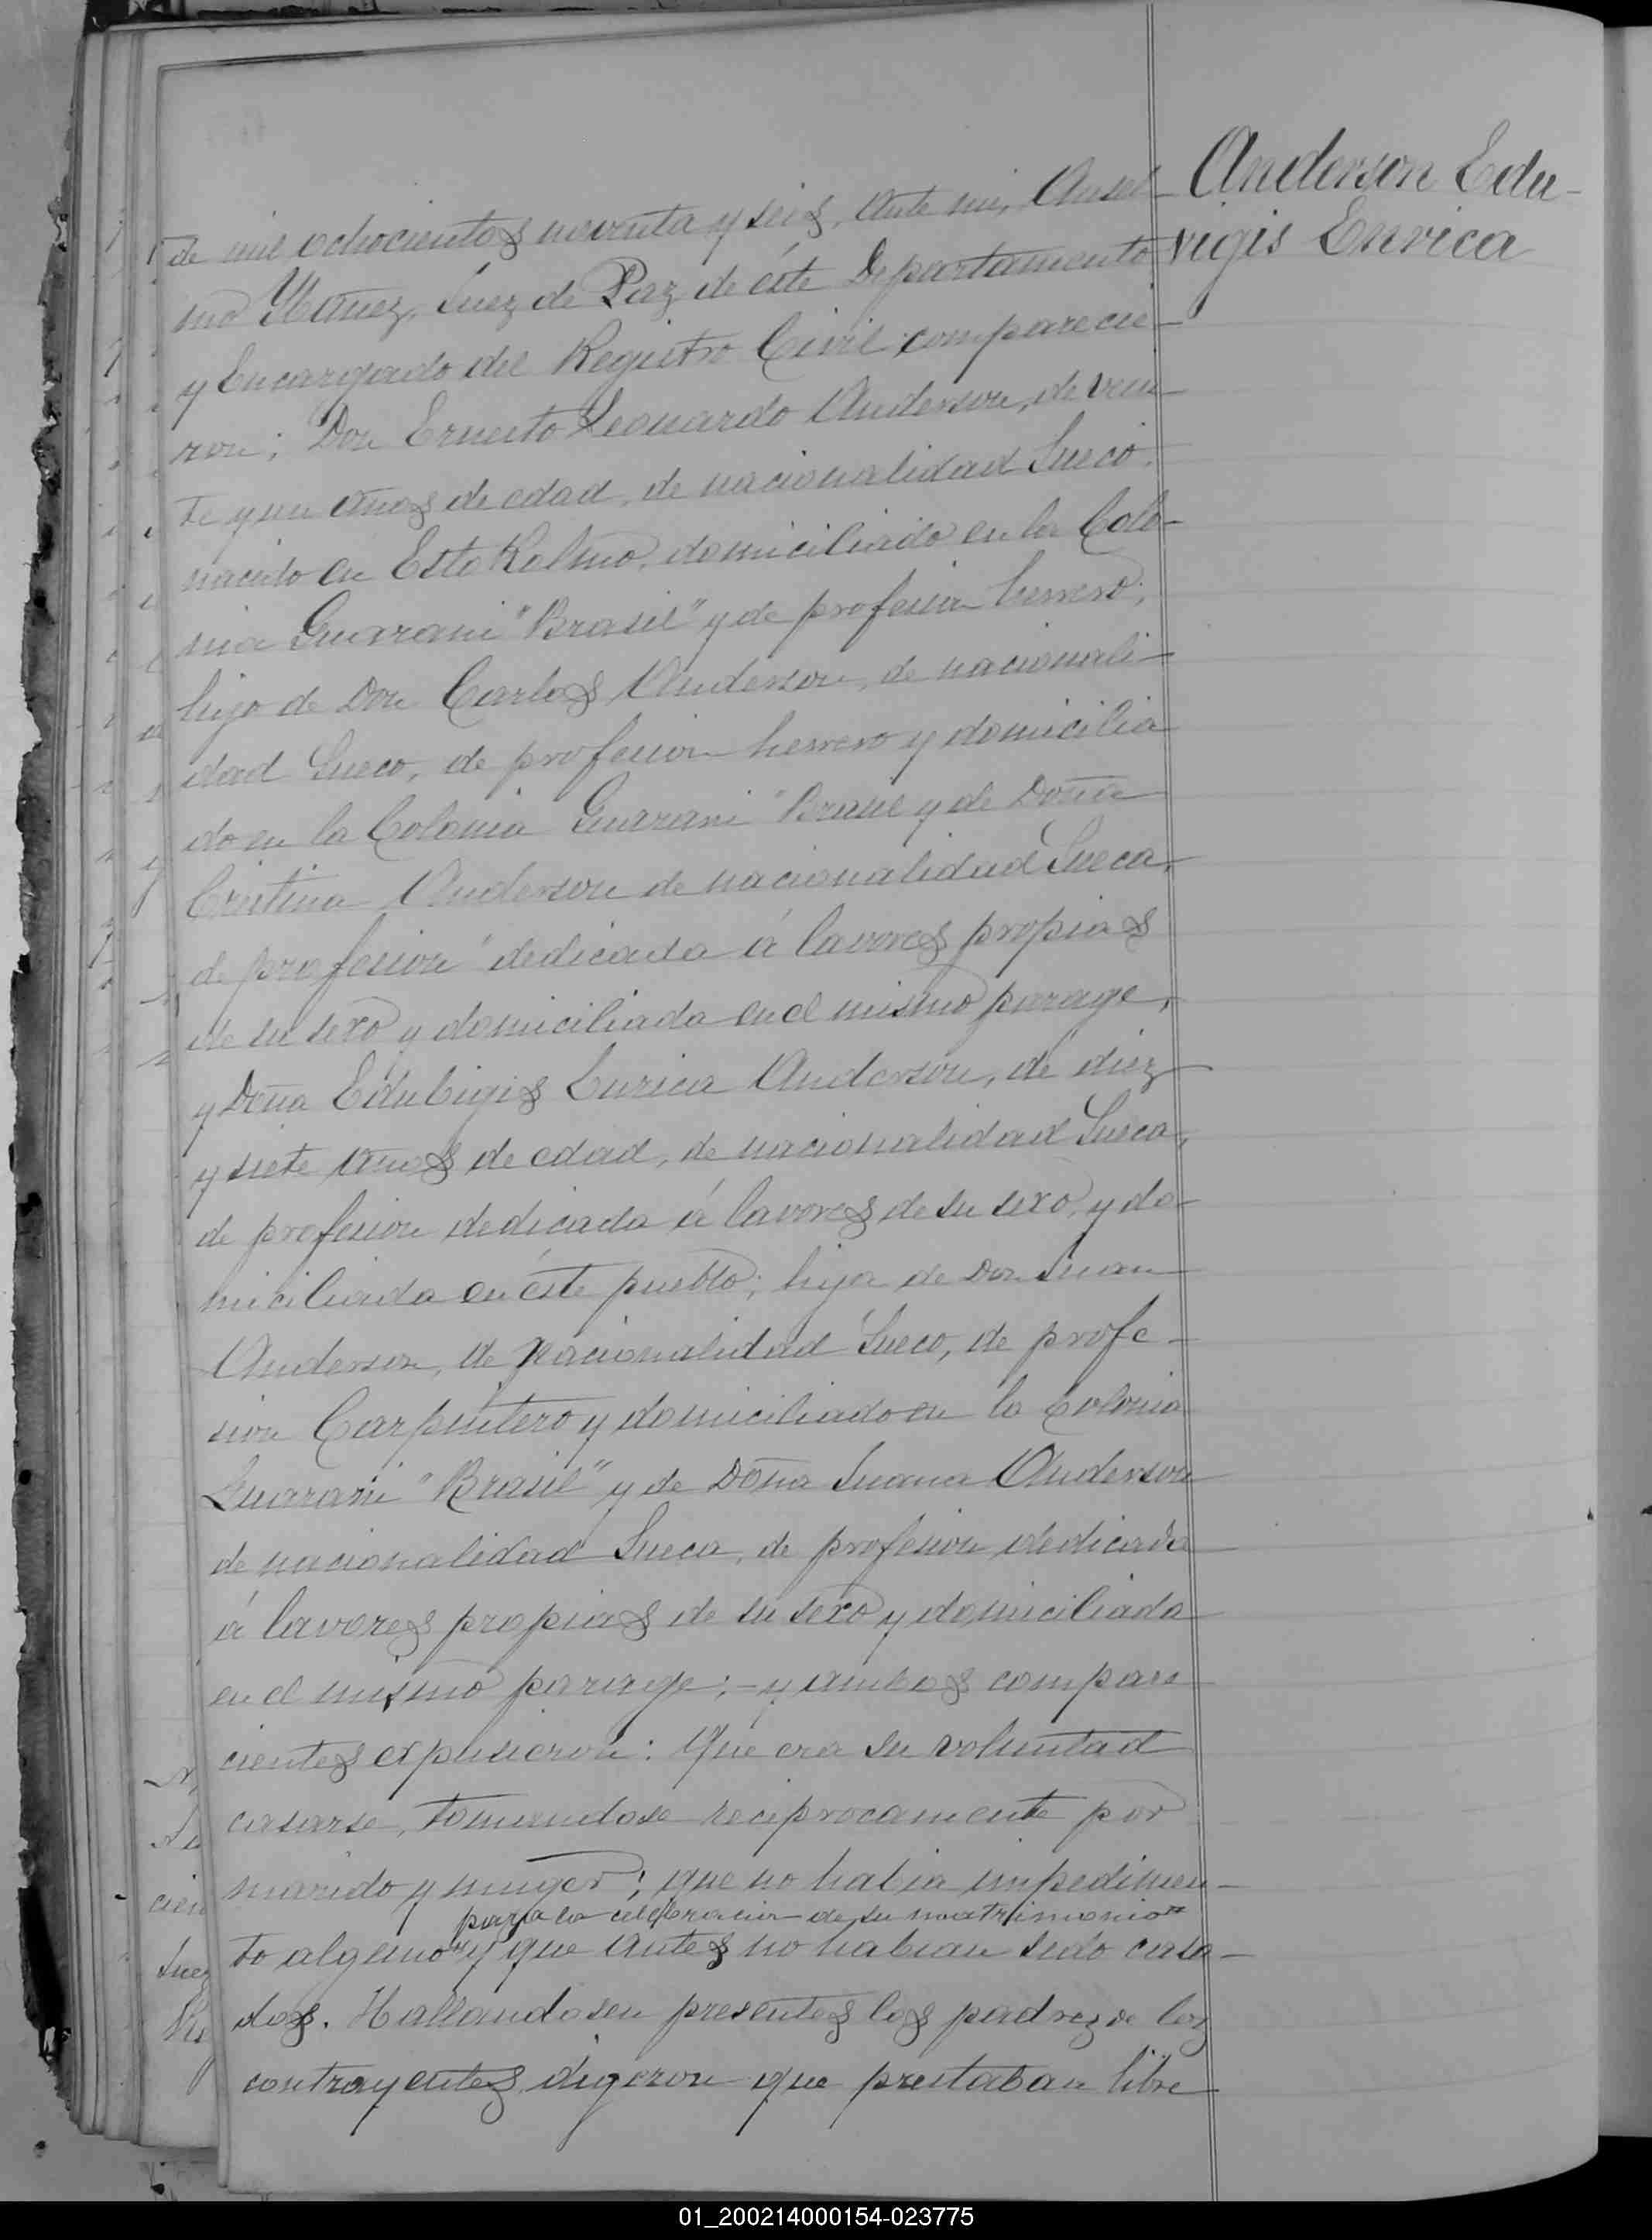 Anderson Edu-
vigis Enrica
de mil ochocientos noventa y seis, ante mi, Ansel-
mo Ybañez, Juez de Paz de éste Departamento
y Encargado del Registro Civil comparecie-
ron; Don Ernesto Leonardo Anderson, de vein-
te y un años de edad, de nacionalidad Sueco,
nacido en Estokolmo, domiciliado en la Colo-
nia Guarani "Brasil" y de profesion herrero;
hijo de Don Carlos Anderson, de nacionali-
dad Sueco, de profesion herrero y domicilia
do en la Colonia Guarani "Brasil y de Doña
Cristina Anderson de nacionalidad Sueca,
de profesion" dedicada á lavores propias
de su sexo y domiciliada en el mismo parage,
y Doña Edubigis Enrica Anderson, de diez
y siete años de edad, de nacionalidad Sueca,
de profesion dedicada á lavores de su sexo, y do-
miciliada en éste pueblo; hija de Don Juan
Anderson, de nacionalidad Sueco, de profe-
sion Carpintero y domiciliado en la Colonia
Guarani "Brasil" y de Doña Juana Anderson
de nacionalidad Sueca, de profesion dedicada
á lavores propias de su sexo y domiciliada
en el mismo parage; - y ambos compare
cientes expusieron: Que era su voluntad
casarse, tomandose reciprocamente por
marido y muger; que no habia impedimen-
para la celebracion de su matrimonio"
to alguno" y que antes no habian sido casa-
dos. Hallandosen presentes los padres de los
contrayentes digeron que prestaban libre
01_200214000154-023775